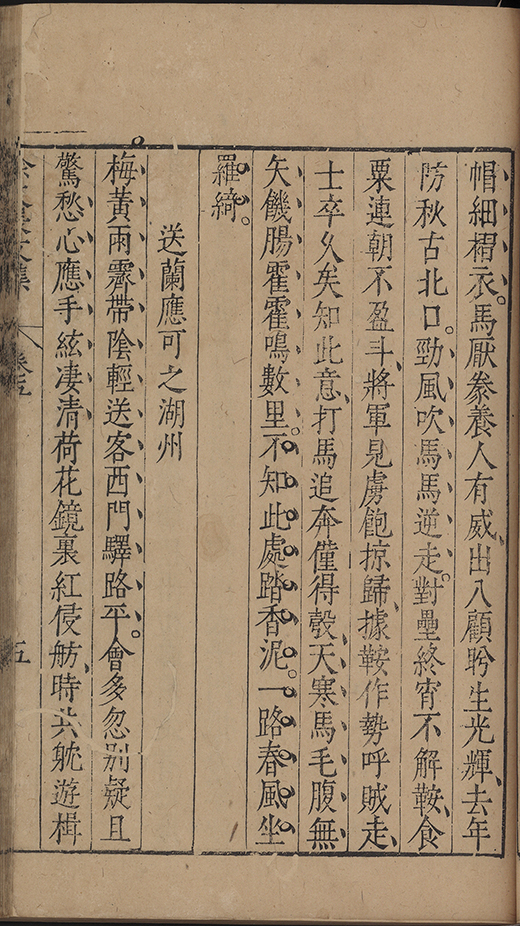 帽細褶衣。馬厭豢養人有威、出入顧盻生光輝、去年
防秋古北口。勁風吹馬馬逆走。對壘終宵不解鞍、食
粟連朝不盈斗、將軍見虜飽掠歸、據鞍作勢呼賊走、
士卒久矣知此意、打馬追奔僅得彀、天寒馬毛腹無
矢饑腸霍霍鳴數里。不知此處踏香泥。一路春風坐
羅綺。
送蘭應可之湖州
梅黃雨霽帶陰輕送客西門驛路平。會多忽別疑且
驚愁心應手絃凄清荷花鏡裏紅侵舫、時共躭遊楫
五